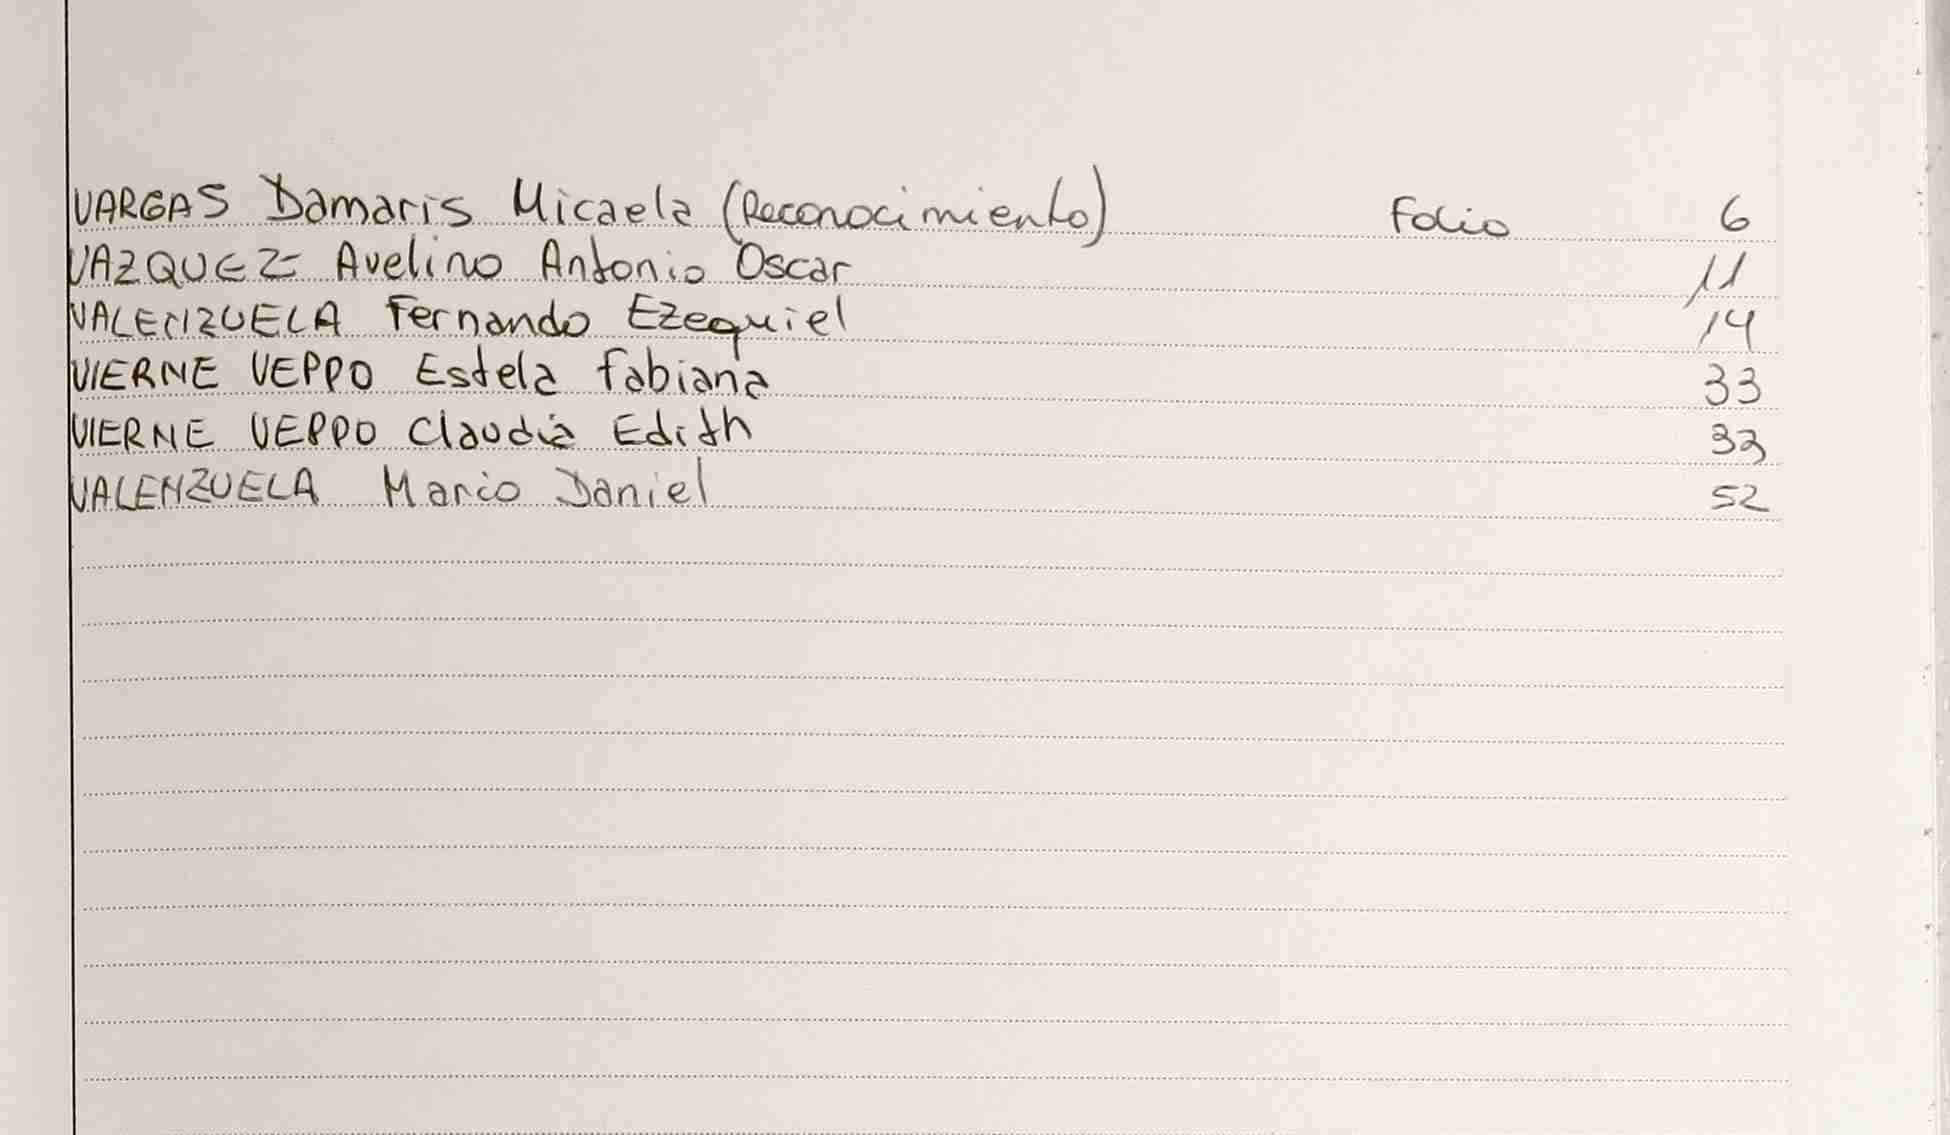 VARGAS Damaris Micaela (Reconocimiento) Folio 6
VAZQUEZ Avelino Antonio Oscar 11
VALENZUELA Fernando Ezequiel 14
VIERNE VEPPO Estela Fabiana 33
VIERNE VEPPO Claudia Edith 33
VALENZUELA Mario Daniel 52